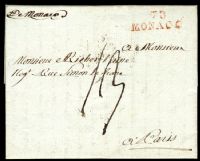 De Monaco
78
MONACO
A Monsieur
Monsieur
Rue Simon le franc
13
A Paris